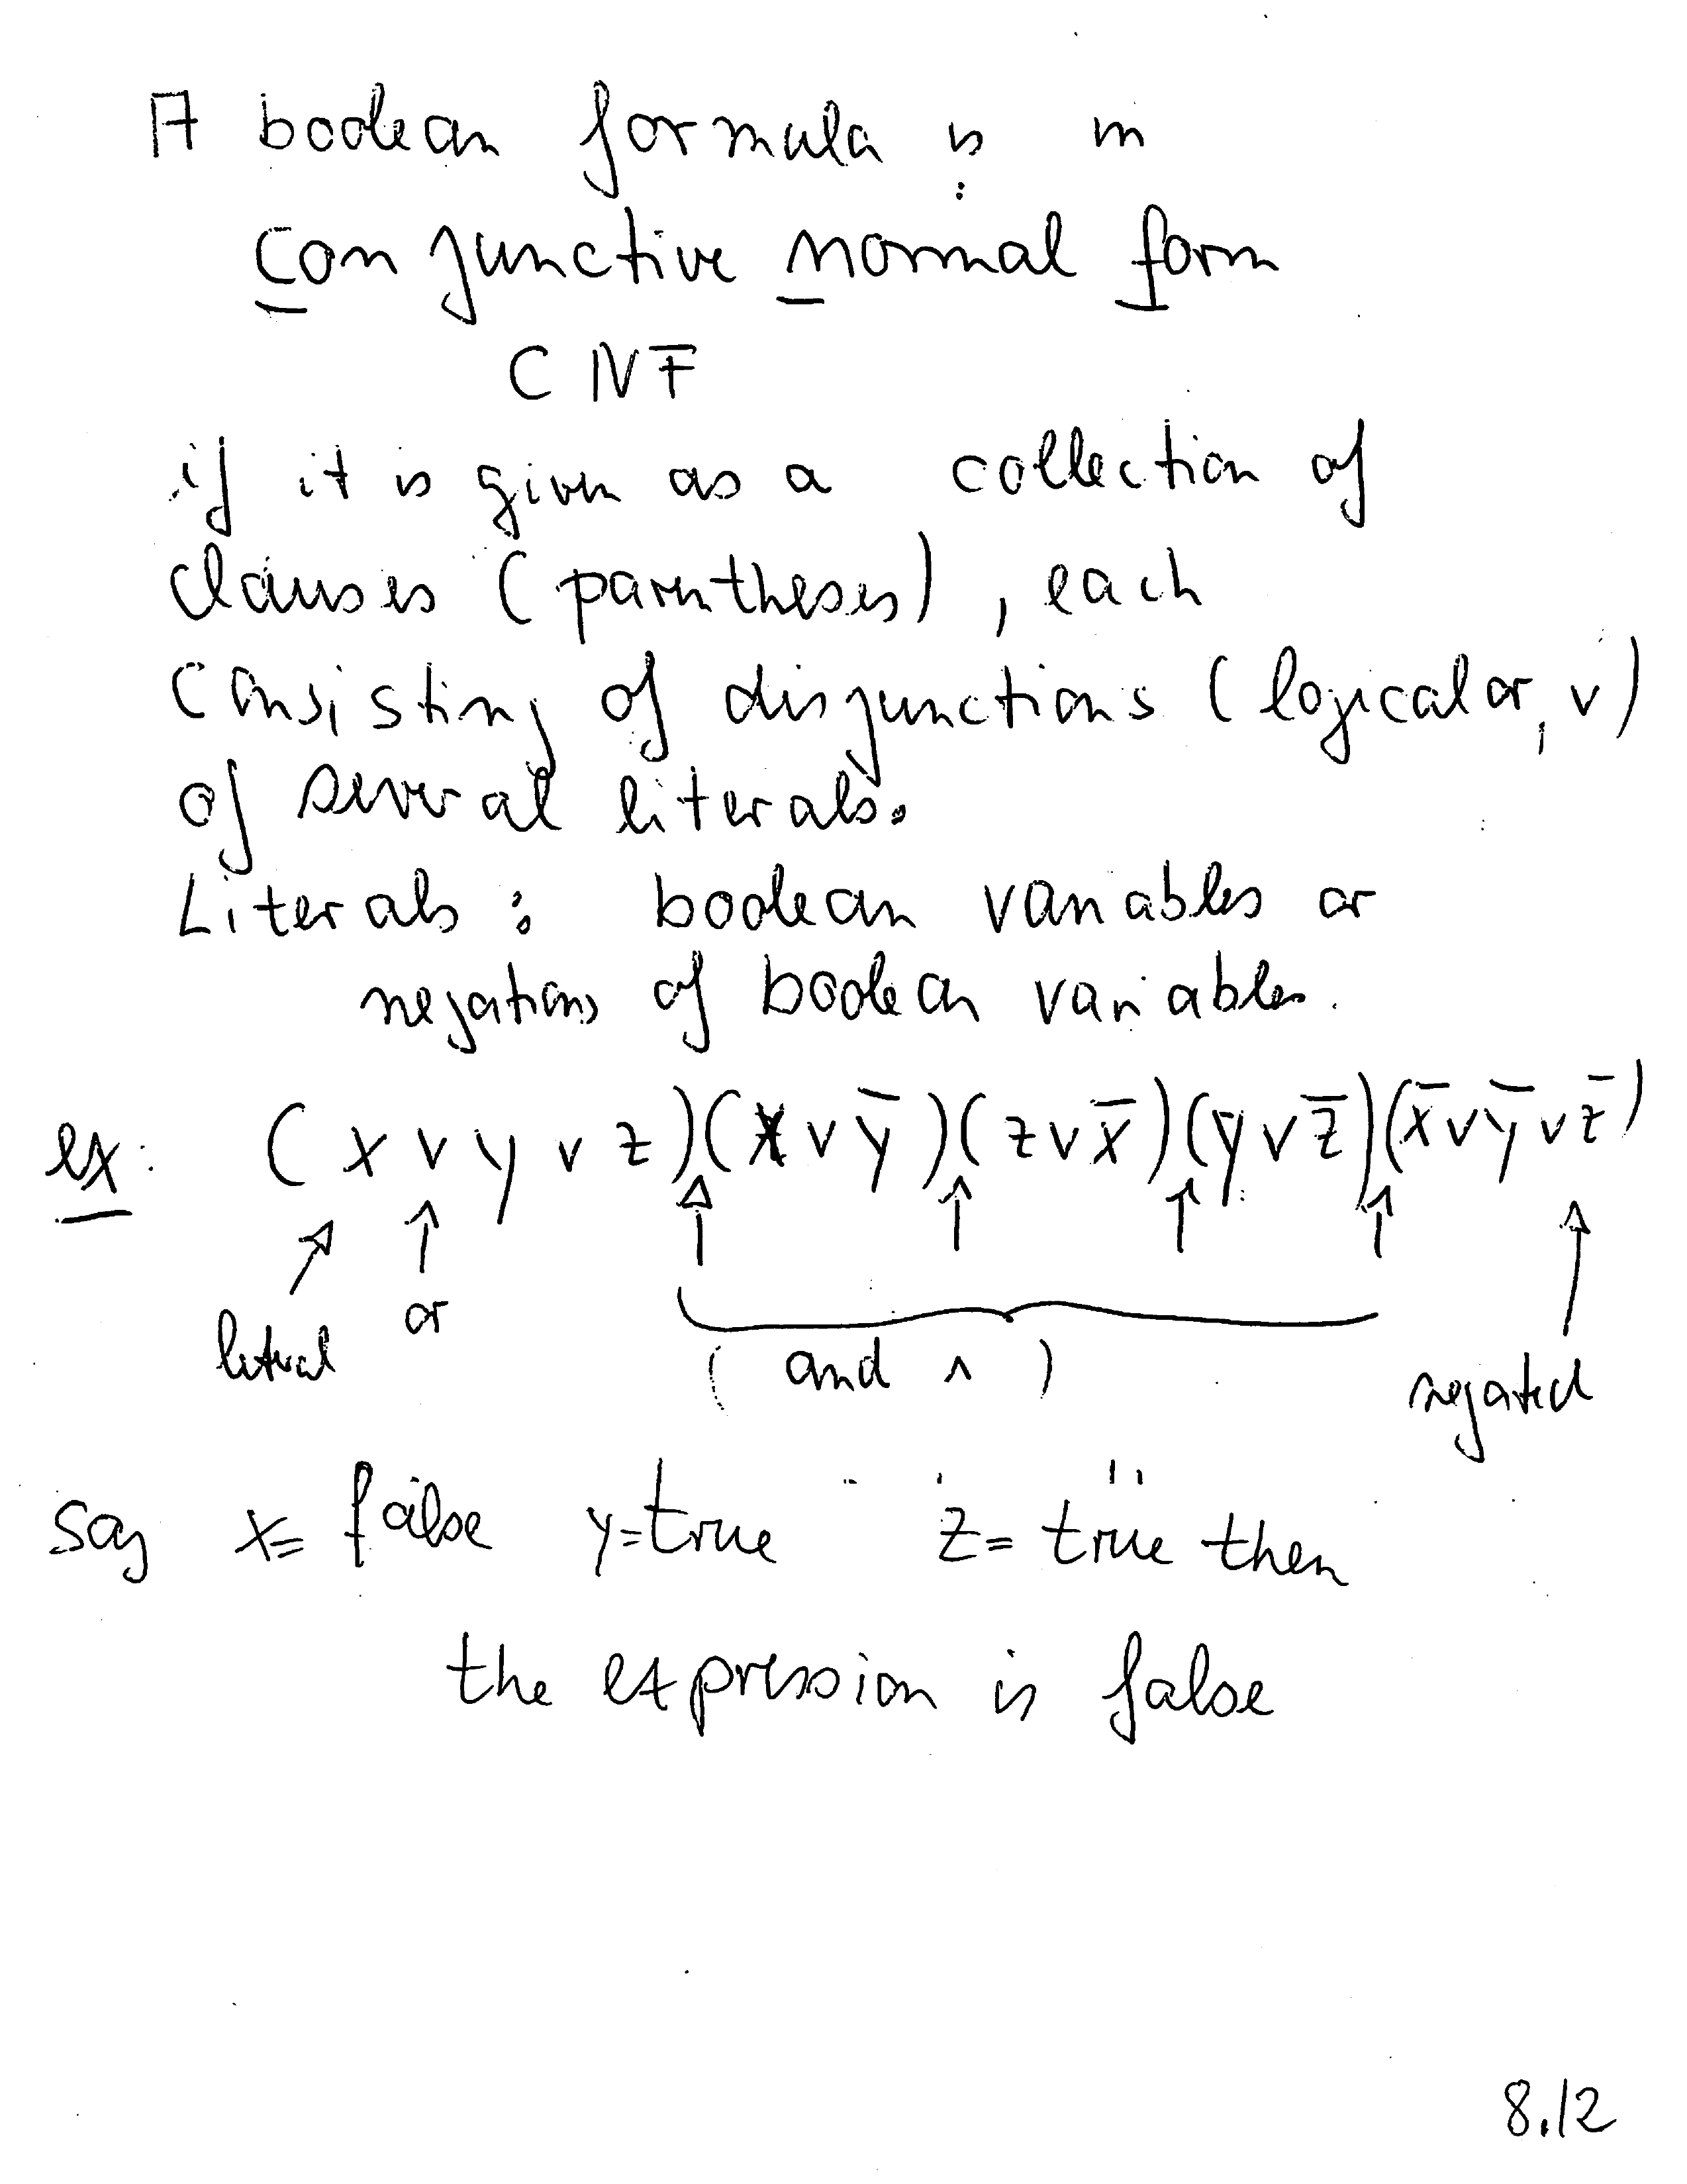 A boolean formula is in
conjunctive normal form
CNF
if it is given as a collection of
clauses (parentheses), each
consisting of disjunctions (logical or, v)
of several literals.
Literals: boolean variables or
negations of boolean variables.
ex: (x v y v z)(x v y̅)(z v x̅)(y v z̅)(x̅ v y̅ v z̅)
literal or (and ∧) negated
say x= false y=true z= true then
the expression is false
8.12